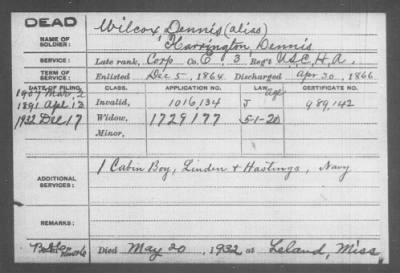 DEAD
NAME OF SOLDIER: Wilcox Dennis (alias)
Harrington, Dennis
SERVICE: Late rank, Corp Co. E, 3 Reg't U.S.C.H.A.
TERM OF SERVICE: Enlisted Dec 5, 1864 Discharged Apr 30, 1866
DATE OF FILING. CLASS. APPLICATION NO. LAW. CERTIFICATE NO.
1907 Mar. 2 age
1891 Apr 13 Invalid, 1016,134 J 989,142
1932 Dec 17 Widow, 1729177 5-1-20
Minor,
ADDITIONAL SERVICES: 1 Cabin Boy, Linden & Hastings, Navy
REMARKS:
Died May 20, 1932 at Leland, Miss